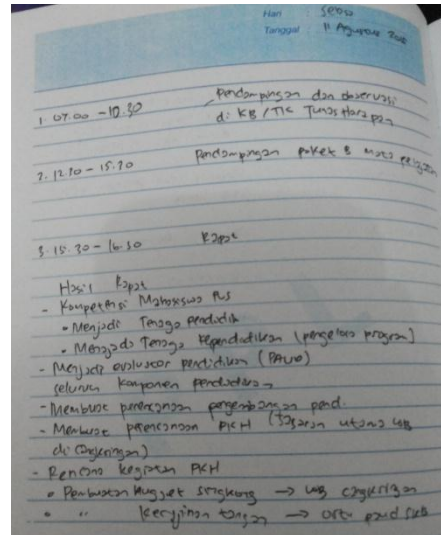 Hari : Senin
Tanggal : 11 Agustus
1. 07.00 - 10.30 Pendampingan dan observasi
di KB / TK Tunas Harapan
2. 12.30 - 15.30 Pendampingan paket B mata pelajaran
3. 15.30 - 16.30 Rapat
Hasil Rapat
- Kompetensi Mahasiswa PLS
• Menjadi Tenaga pendidik
• Menjadi Tenaga Kependidikan (pengelola program)
- Menjadi evaluator pendidikan (PAUD)
seluruh komponen pendidikan
- Membuat perencanaan pengembangan pend.
- Membuat perencanaan PKH (sasaran utama WB
di Cangkringan)
- Rencana kegiatan PKH
• Pembuatan Nugget singkong → WB Cangkringan
• " kerajinan tangan → ortu paud